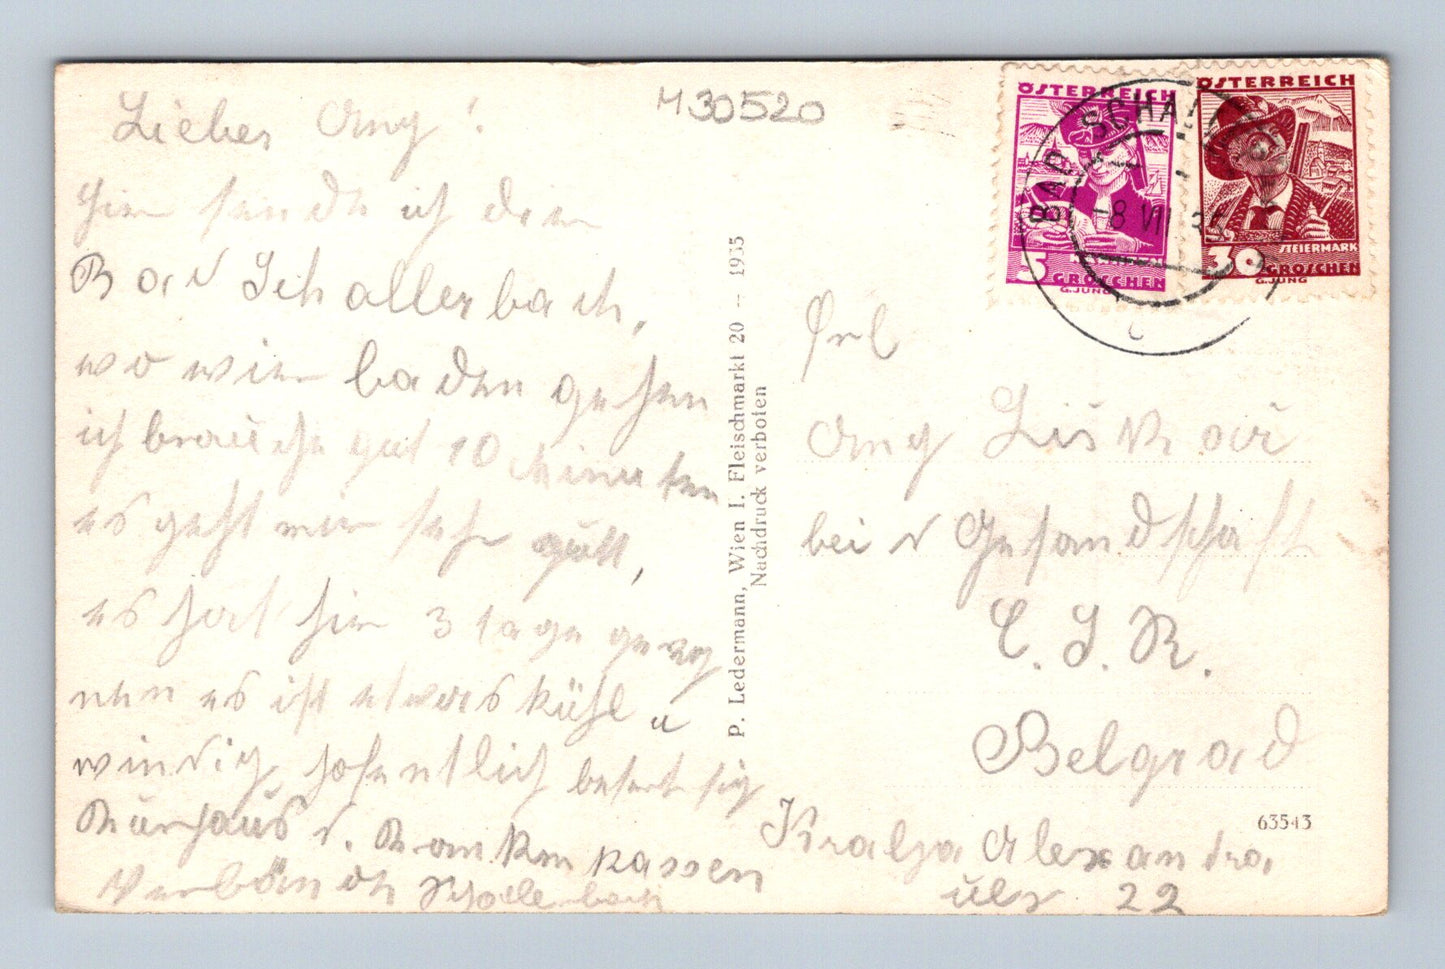 H30520
Lieber Amy!
hier sende ich dir
Bad Schallerbach,
wo wir baden gehen
ich brauche gut 10 Minuten
es geht mir sehr gutt,
es hat hier 3 tage gereg
nen es ist etwas kühl u
windig hofentlich besert sig
Kurhaus d. Krankenkassen
Verbände Schallerbach
P. Ledermann, Wien I. Fleischmarkt 20 -- 1935
Nachdruck verboten
ÖSTERREICH
5
GROSCHEN
G.JUNG
ÖSTERREICH
STEIERMARK
30 GROSCHEN
G.JUNG
BAD SCHALLERBACH
-8 VII 36
c
Frl
Amy
bei d Gesandschaft
C.S.R.
Belgrad
Kralja Alexandra
ulr 22
63543